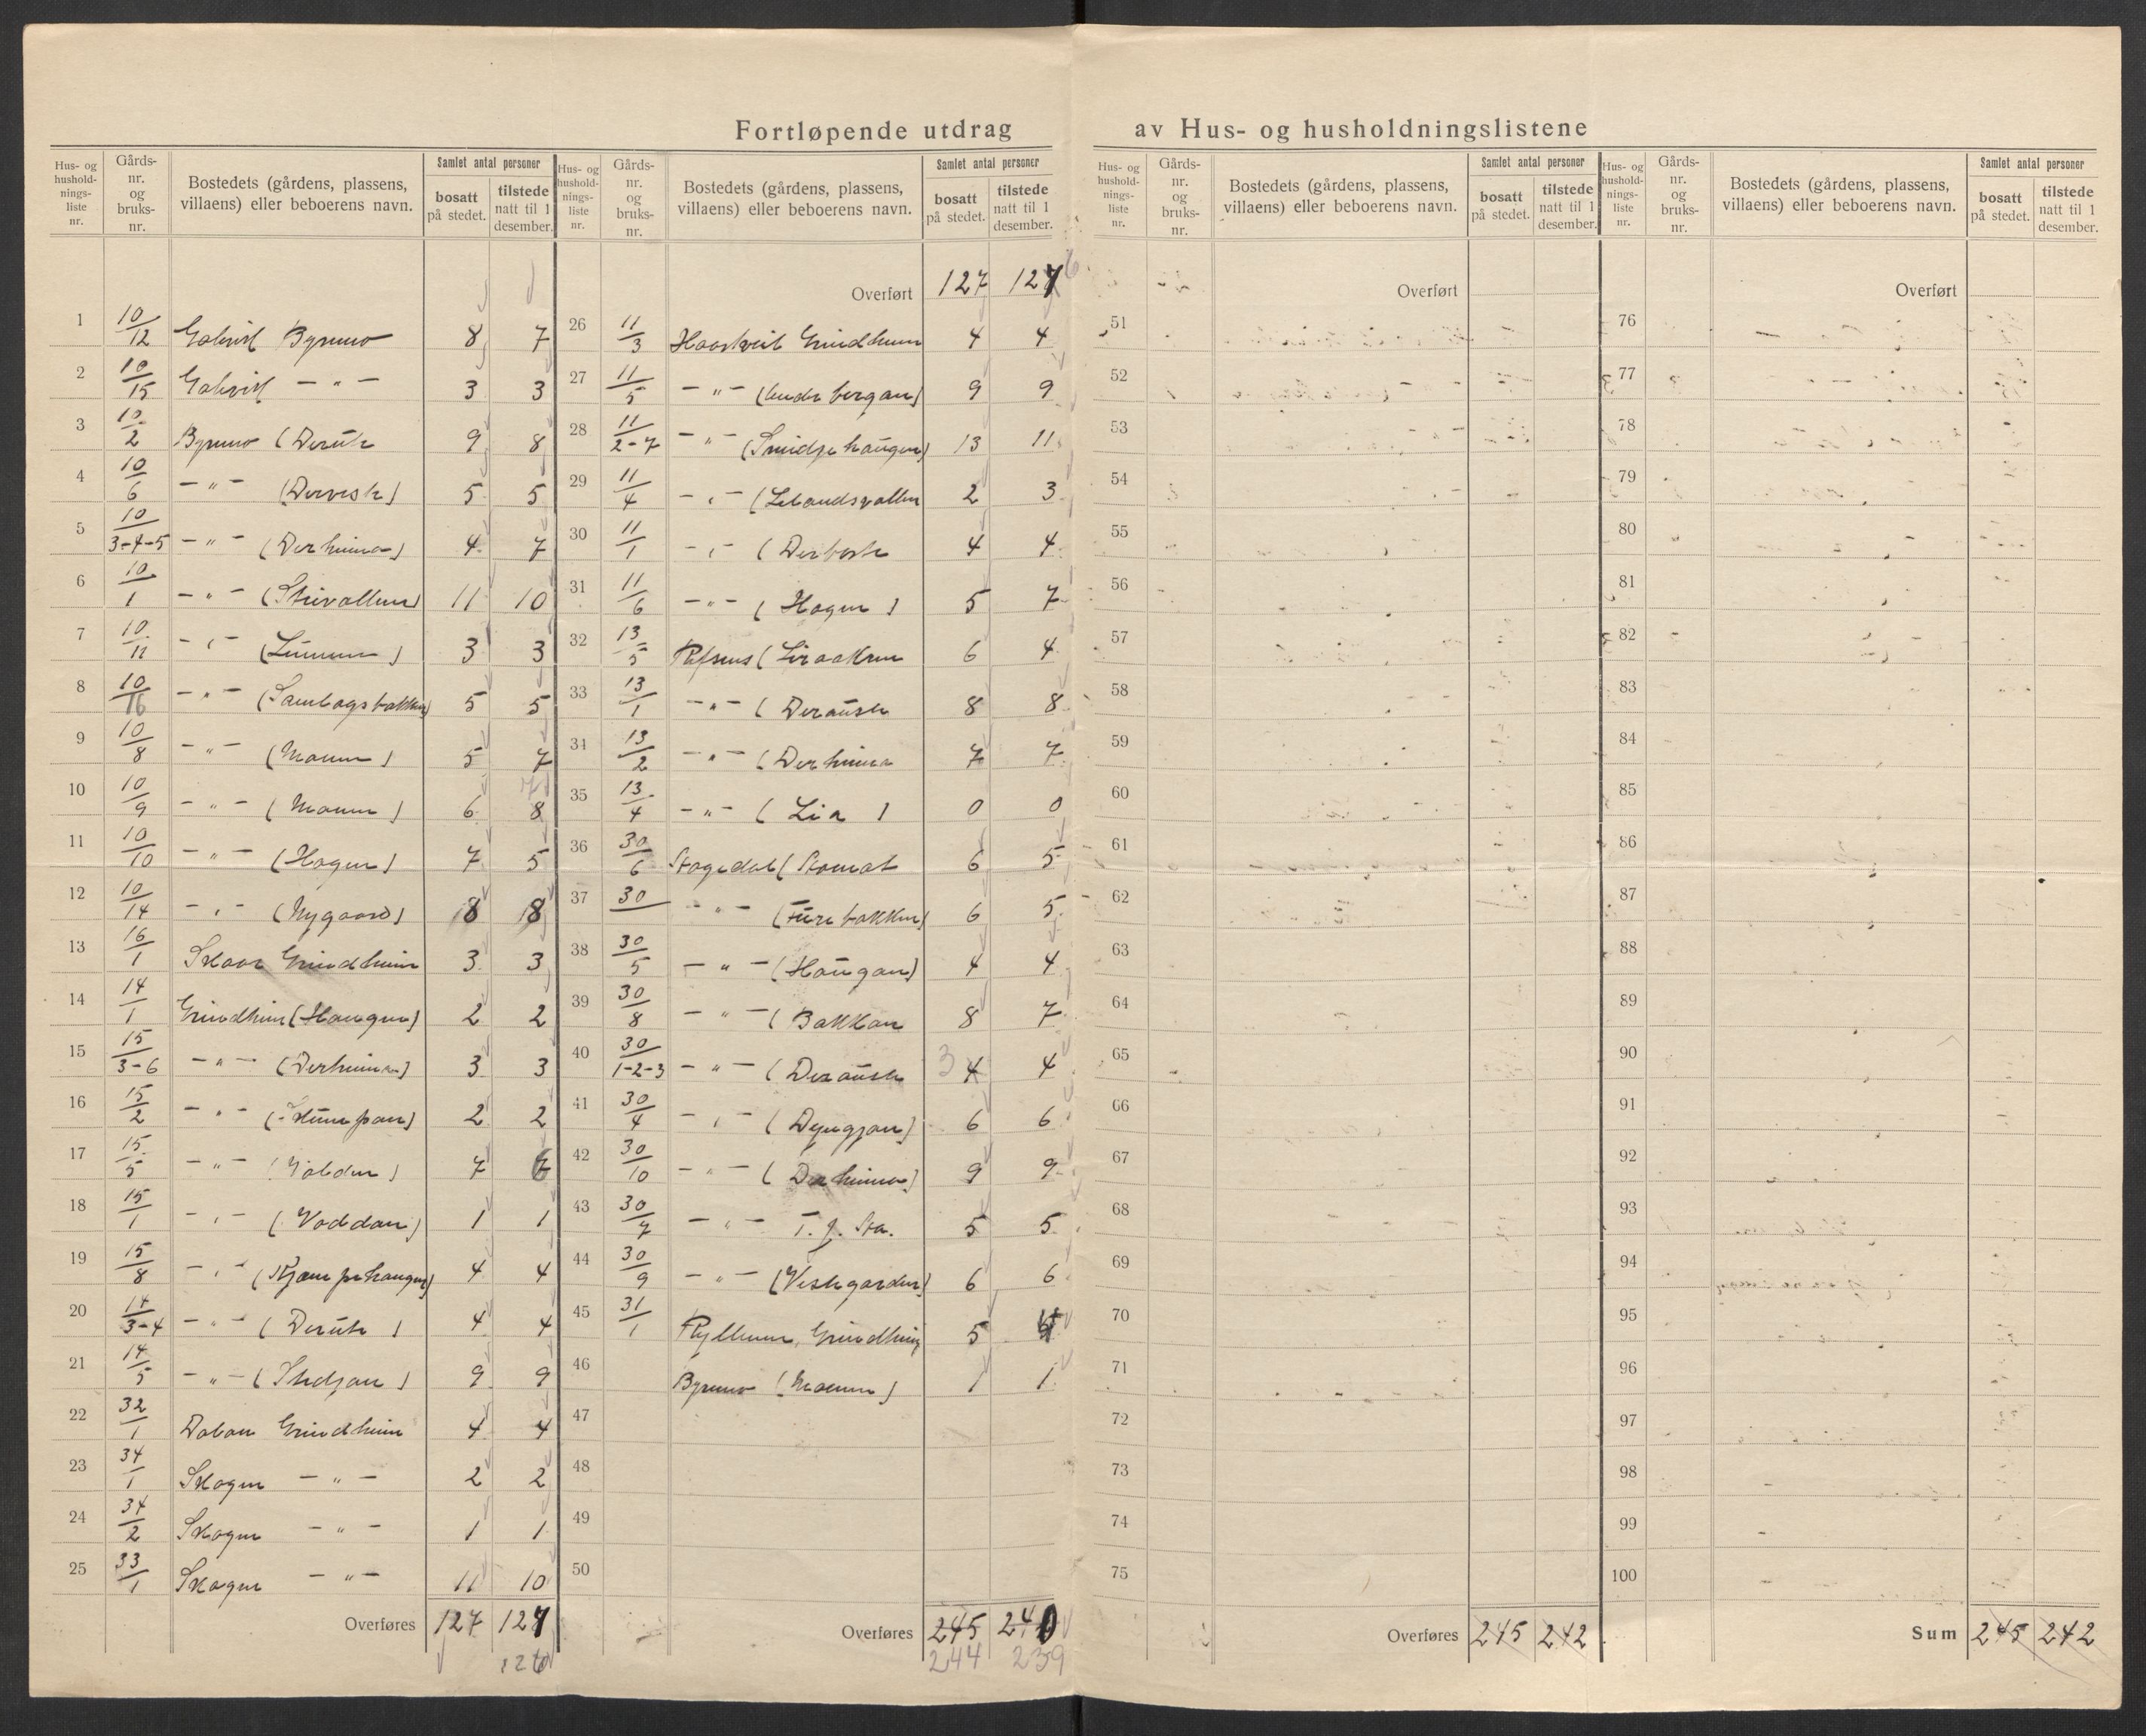 Fortløpende utdrag av Hus- og husholdningslistene
Hus- og husholdningsliste nr. | Gårds-nr. og bruks-nr. | Bostedets (gårdens, plassens, villaens) eller beboerens navn. | Samlet antal personer | bosatt på stedet. | tilstede natt til 1 desember.
1 10/12 Galvist Byremo 8 7
2 10/15 Galvist — " — 3 3
3 10/2 Byremo (Derute 9 8
4 10/6 — " — (Derveste) 5 5
5 10/3-4-5 — " — (Derheima) 4 7
6 10/1 — " — 11 10
7 10/11 — " — 3 3
8 10/16 — " — 5 5
9 10/8 — " — (Moene) 5 7
10 10/9 — " — (Moene) 6 8 7
11 10/10 — " — (Hagen) 7 5
12 10/14 — " — (Nygaard) 8 8
13 16/1 Skaar Grindheim 3 3
14 14/1 Grindheim (Haugen) 2 2
15 15/3-6 — " — (Derheima) 3 3
16 15/2 — " — 2 2
17 15/5 — " — 7 6
18 15/1 — " — (Voddan) 1 1
19 15/8 — " — (Kjempehaugen) 4 4
20 14/3-4 — " — (Derute) 4 4
21 14/5 — " — (Stedjan) 9 9
22 32/1 Dalan Grindheim 4 4
23 34/1 Skogen — " — 2 2
24 34/2 Skogen — " — 1 1
25 33/1 Skogen — " — 11 10
Overføres 127 127
126
Hus- og husholdningsliste nr. | Gårds-nr. og bruks-nr. | Bostedets (gårdens, plassens, villaens) eller beboerens navn. | Samlet antal personer | bosatt på stedet. | tilstede natt til 1 desember.
Overført 127 127 6
26 11/3 Haastveit Grindheim 4 4
27 11/5 — " — (Underbergan) 9 9
28 11/2-7 — " — (Smidjehaugen) 13 11
29 11/4 — " — 2 3
30 11/1 — " — (Derborte 4 4
31 11/6 — " — (Hagen) 5 7
32 13/5 Refsnes (Liraakren 6 4
33 13/1 — " — (Derauste 8 8
34 13/2 — " — (Derheima 7 7
35 13/4 — " — (Lia) 0 0
36 30/6 6 5
37 30 — " — (Furebakken) 6 5
38 30/5 — " — (Haugan) 4 4
39 30/8 — " — (Bakkan 8 7
40 30/1-2-3 — " — (Derauste 3 4 4
41 30/4 — " — (Dyngjan) 6 6
42 30/10 — " — (Derheima) 9 9
43 30/7 — " — T. f. Sta. 5 5
44 30/9 — " — (Vestegarden) 6 6
45 31/1 Grindheim 5 4
46 Byremo (Moene) 1 1
47
48
49
50
Overføres 245 240
244 239
Hus- og husholdningsliste nr. | Gårds-nr. og bruks-nr. | Bostedets (gårdens, plassens, villaens) eller beboerens navn. | Samlet antal personer | bosatt på stedet. | tilstede natt til 1 desember.
Overført
51
52
53
54
55
56
57
58
59
60
61
62
63
64
65
66
67
68
69
70
71
72
73
74
75
Overføres 245 242
Hus- og husholdningsliste nr. | Gårds-nr. og bruks-nr. | Bostedets (gårdens, plassens, villaens) eller beboerens navn. | Samlet antal personer | bosatt på stedet. | tilstede natt til 1 desember.
Overført
76
77
78
79
80
81
82
83
84
85
86
87
88
89
90
91
92
93
94
95
96
97
98
99
100
Sum 245 242